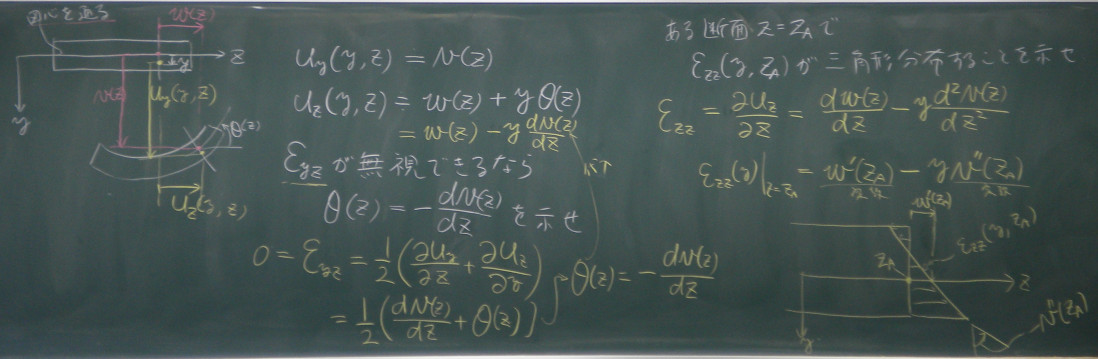 図心を通る
w(z)
z
y
v(z)
y
u_y(y,z)
θ(z)
u_z(y,z)
y
u_y(y,z) = v(z)
u_z(y,z) = w(z) + yθ(z)
= w(z) - y dv(z)/dz
ε_yz が無視できるなら
θ(z) = - dv(z)/dz を示せ
0 = ε_yz = 1/2 (∂u_y/∂z + ∂u_z/∂y)
= 1/2 (dv(z)/dz + θ(z))
θ(z) = - dv(z)/dz
ある断面 z = z_A で
ε_zz(y,z_A) が三角形分布することを示せ
ε_zz = ∂u_z/∂z = dw(z)/dz - y d²v(z)/dz²
ε_zz(y)|_z=z_A = w'(z_A) - y v''(z_A)
定数 定数
w'(z_A)
ε_zz(y,z_A)
z_A
z
y
v''(z_A)